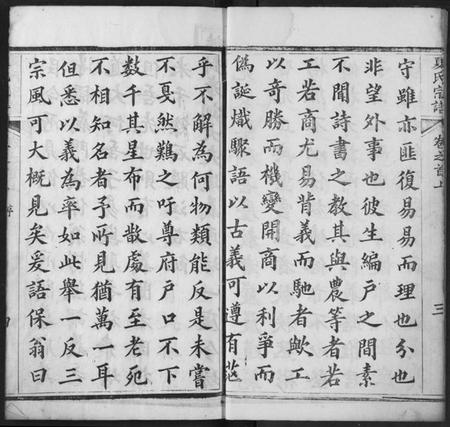 夏氏宗譜
卷之首上
三
守雖亦匪復易易而理也分也
非望外事也彼生編戶之間素
不聞詩書之教其與農等者若
工若商尤易背義而馳者歟工
以奇勝而機變開商以利爭而
偽誕熾驟語以古義可遵有莚
乎不解為何物類能反是未嘗
不戛然難之吁尊府戶口不下
數千其星布而散處有至老死
不相知名者予所見猶萬一耳
但悉以義為率如此舉一反三
宗風可大概見矣爰語保翁曰